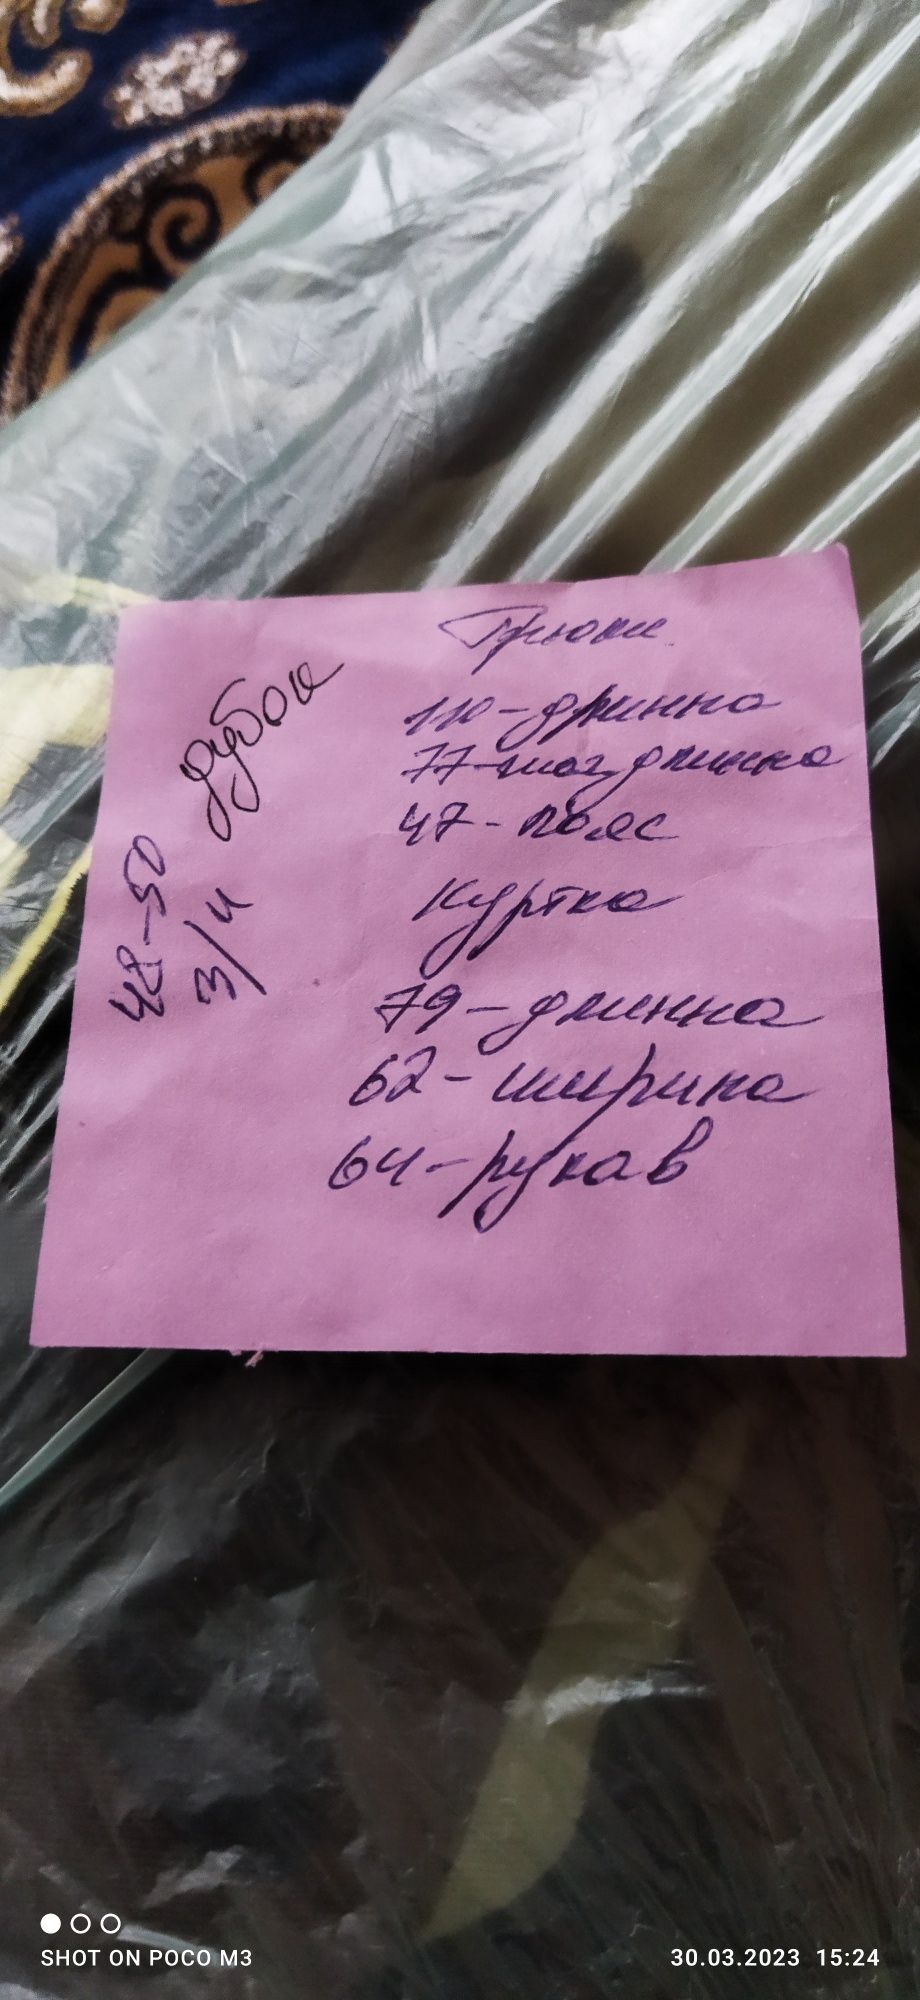 Брюки
110-длинна
77-шаг длинна
47-пояс
Куртка
79-длинна
62-ширина
64-рукав
дубок
48-50
3/4
SHOT ON POCO M3
30.03.2023 15:24